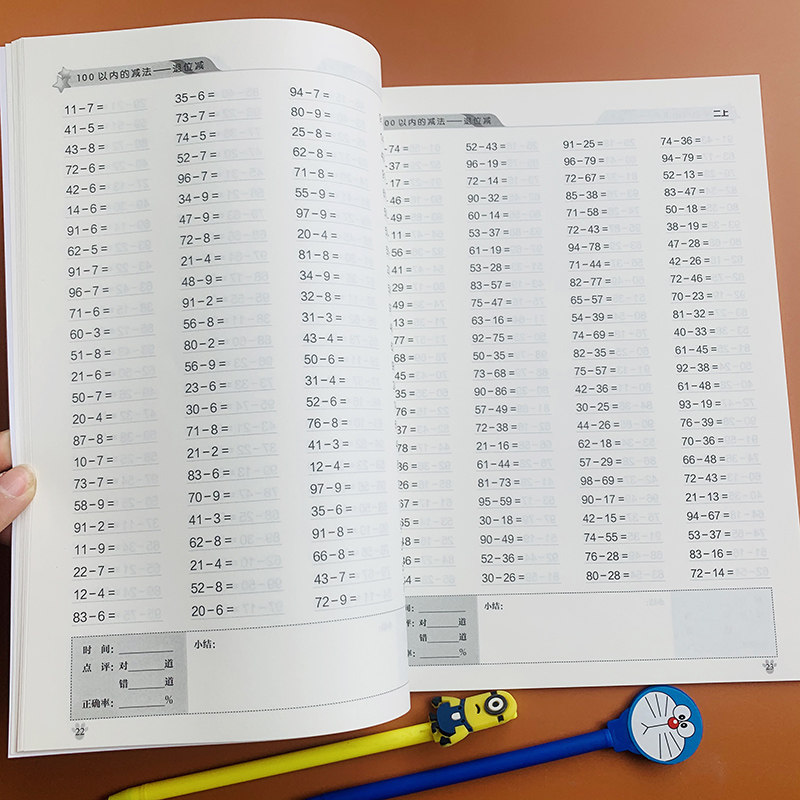 100以内的减法——退位减
11－7＝ 35－6＝ 94－7＝
41－5＝ 73－7＝ 80－9＝
43－8＝ 74－5＝ 25－8＝
72－6＝ 52－7＝ 62－8＝
42－6＝ 96－7＝ 71－8＝
14－6＝ 34－9＝ 55－9＝
91－6＝ 47－9＝ 97－9＝
62－5＝ 72－8＝ 20－4＝
91－7＝ 21－4＝ 81－8＝
96－7＝ 48－9＝ 34－9＝
71－6＝ 91－2＝ 32－8＝
60－3＝ 56－8＝ 31－3＝
51－8＝ 80－2＝ 43－4＝
21－6＝ 56－9＝ 50－6＝
50－7＝ 23－6＝ 31－4＝
20－4＝ 30－6＝ 52－6＝
87－8＝ 71－8＝ 76－8＝
10－7＝ 21－2＝ 41－3＝
73－7＝ 83－6＝ 12－4＝
58－9＝ 70－9＝ 97－9＝
91－2＝ 41－3＝ 35－6＝
11－9＝ 62－8＝ 91－8＝
22－7＝ 21－4＝ 66－8＝
12－4＝ 52－8＝ 43－7＝
83－6＝ 20－6＝ 72－9＝
时 间：
点 评：对 道
错 道
正确率： %
小结：
22
00以内的减法——退位减
二上
－74＝ 52－43＝ 91－25＝ 74－36＝
－37＝ 96－19＝ 96－79＝ 94－79＝
－17＝ 72－14＝ 72－67＝ 52－13＝
－46＝ 90－32＝ 85－38＝ 83－47＝
49＝ 60－14＝ 71－58＝ 50－18＝
11＝ 53－37＝ 72－43＝ 38－19＝
56＝ 61－19＝ 94－78＝ 47－28＝
41＝ 53－28＝ 71－44＝ 42－26＝
29＝ 83－57＝ 82－77＝ 72－46＝
49＝ 75－47＝ 65－57＝ 70－23＝
13＝ 63－16＝ 54－39＝ 81－32＝
77＝ 92－75＝ 74－69＝ 40－33＝
68＝ 50－35＝ 82－35＝ 61－45＝
45＝ 73－68＝ 75－57＝ 92－38＝
35＝ 90－86＝ 42－36＝ 61－48＝
76＝ 57－49＝ 30－25＝ 93－19＝
37＝ 72－38＝ 44－26＝ 76－39＝
78＝ 21－16＝ 62－18＝ 70－36＝
36＝ 61－44＝ 57－29＝ 66－48＝
26＝ 81－73＝ 98－69＝ 72－43＝
67＝ 95－59＝ 90－17＝ 21－13＝
65＝ 30－18＝ 42－15＝ 94－67＝
48＝ 90－49＝ 74－55＝ 53－37＝
36＝ 52－36＝ 76－28＝ 83－16＝
54＝ 30－26＝ 80－28＝ 72－14＝
间：
评：对 道
错 道
率： %
小结：
23